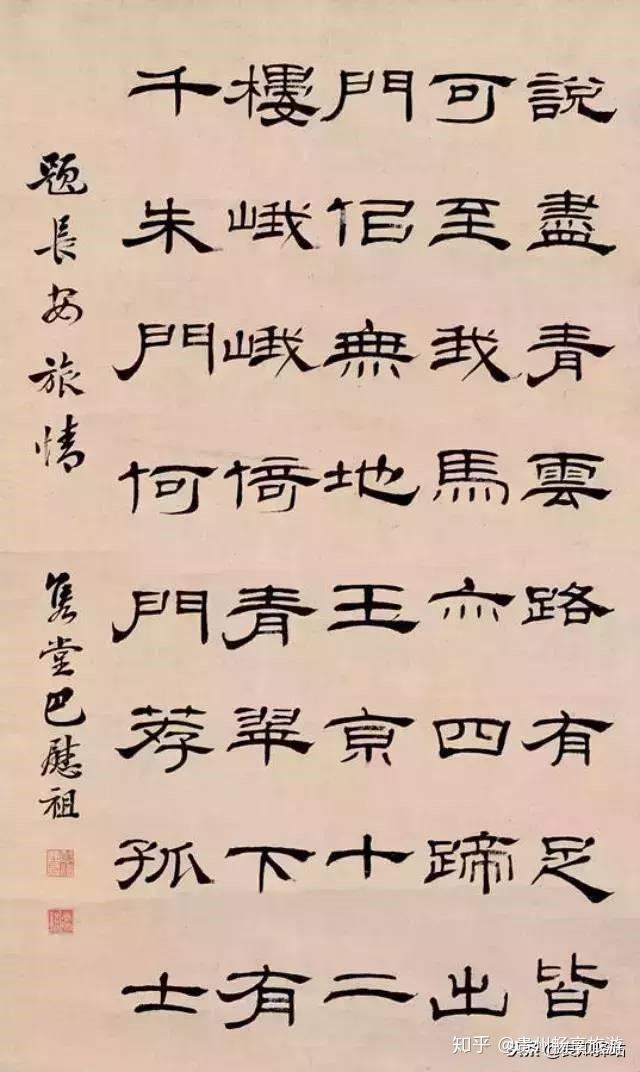 說盡青雲路有足皆
可至我馬亦四蹄出
門似無地王京十二
樓峨峨倚青翠下有
千朱門何門荐孤士
題長安旅情 雋堂巴慰祖
知乎 @虔州畅享旅游